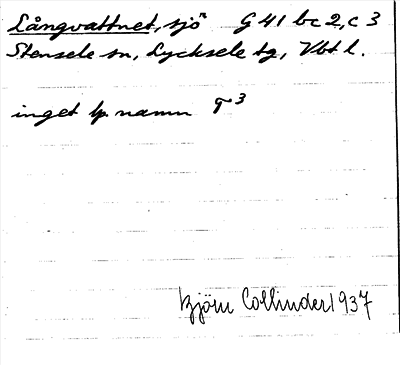 Långvattnet, sjön G 41 bc 2, c 3
Stensele sn, Lycksele tg, Vbt l.
inget lp. namn q³
Björn Collinder 1937